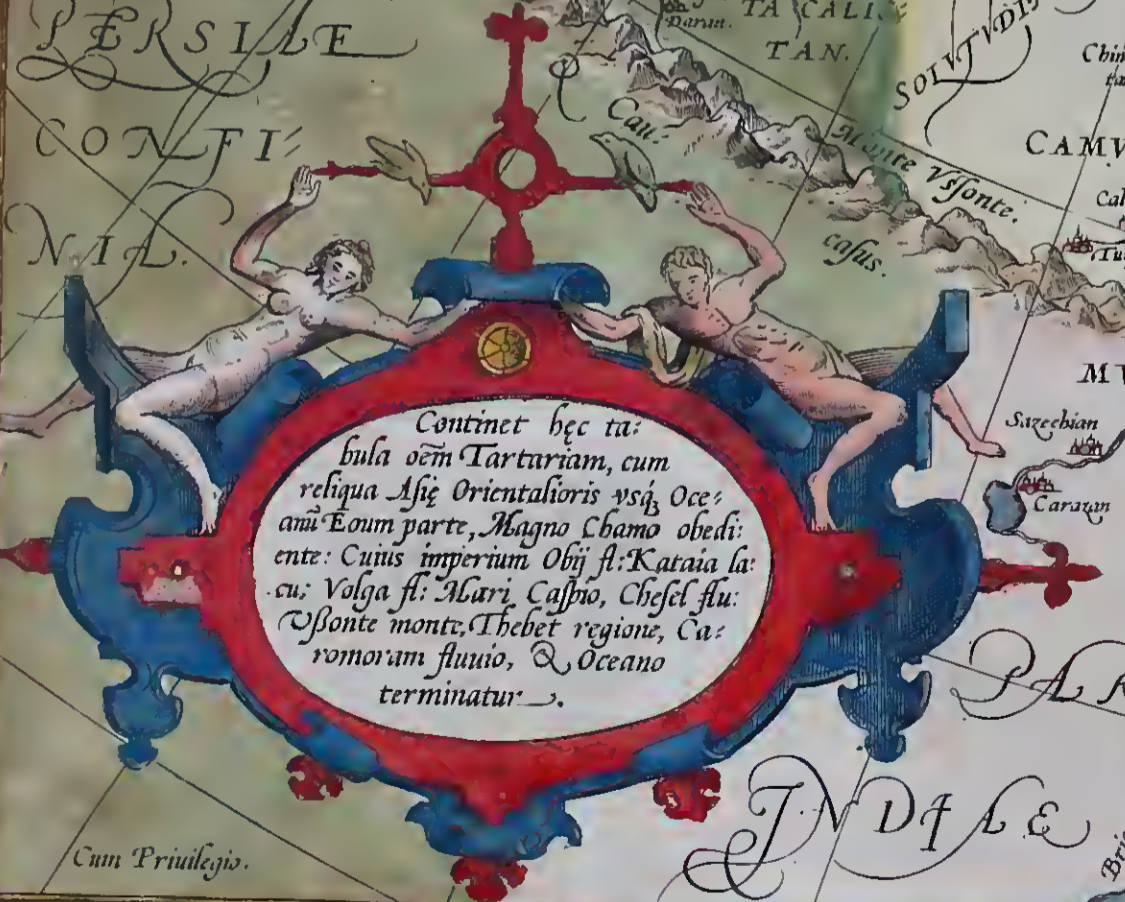 PERSIAE
CONFI⸗
NIA.
Daran.
TACALIS
TAN.
SOLVTVDI
Cau⸗
Monte Vſſonte.
caſus.
CAMV
Cal
Saẓechian
Caraẓan
Continet hęc ta⸗
bula oēm Tartariam, cum
reliqua Aſię Orientalioris vsq́ꝫ Oce⸗
anū Eoum parte, Magno Chamo obedi⸗
ente: Cuius imperium Obij fl: Kataia la⸗
cu; Volga fl: Mari Caſpio, Cheſel flu:
Vßonte monte, Thebet regione, Ca⸗
romoram fluuio, & Oceano
terminatur.
PAR
INDIAE
Cum Priuilegio.